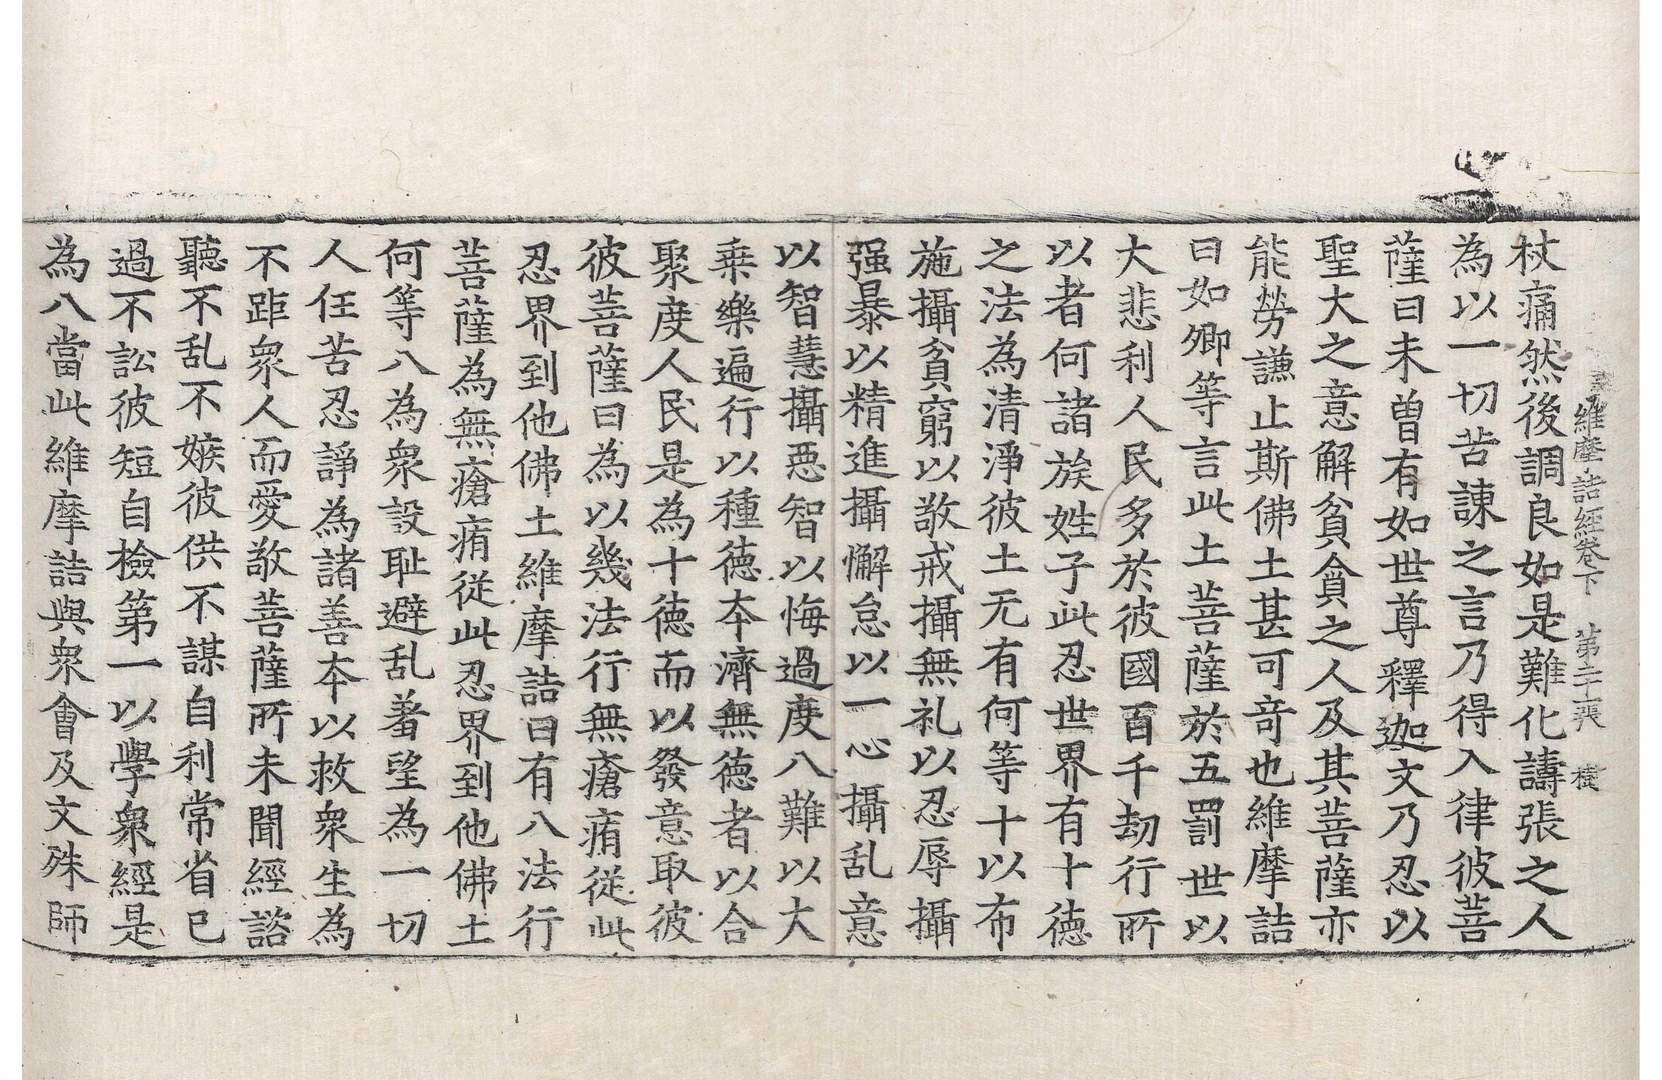 維摩詰經卷下 第二十張 樹
杖痛然後調良如是難化譸張之人
為以一切苦諫之言乃得入律彼菩
薩曰未曾有如世尊釋迦文乃忍以
聖大之意解貧貪之人及其菩薩亦
能勞謙止斯佛土甚可竒也維摩詰
曰如卿等言此土菩薩於五罰世以
大悲利人民多於彼國百千劫行所
以者何諸族姓子此忍世界有十德
之法為清淨彼土无有何等十以布
施攝貧窮以敬戒攝無礼以忍辱攝
强暴以精進攝懈怠以一心攝乱意
以智慧攝惡智以悔過度八難以大
乗樂遍行以種德夲濟無德者以合
聚度人民是為十德而以發意取彼
彼菩薩曰為以幾法行無瘡痏從此
忍界到他佛土維摩詰曰有八法行
菩薩為無瘡痏從此忍界到他佛土
何等八為衆設耻避乱著望為一切
人任苦忍諍為諸善夲以救衆生為
不距衆人而愛敬菩薩所未聞經諮
聽不乱不嫉彼供不謀自利常省己
過不訟彼短自檢第一以學衆經是
為八當此維摩詰與衆會及文殊師